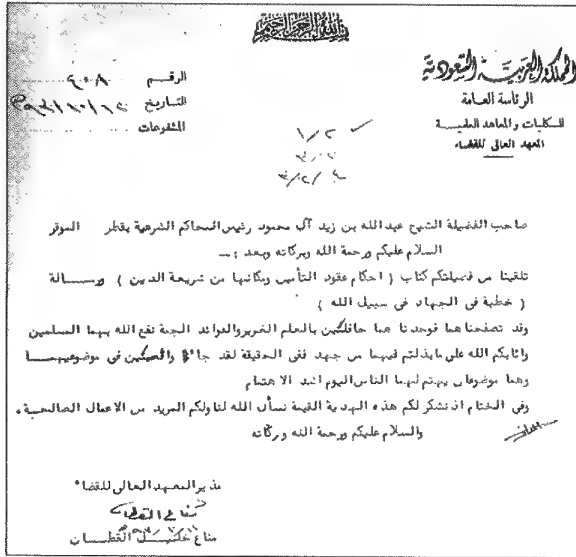 بسم الله الرحمن الرحيم
المملكة العربية السعودية
الرئاسة العامة
للكليات والمعاهد العلمية
المعهد العالي للقضاء
الرقم
التاريخ
المشفوعات
صاحب الفضيلة الشيخ عبد الله بن زيد آل محمود رئيس المحاكم الشرعية بقطر الموقر
السلام عليكم ورحمة الله وبركاته وبعد :ـ
تلقينا من فضيلتكم كتاب ( احكام عقود التأمين ومكانها من شريعة الدين ) ورسالة
( خطبة في الجهاد في سبيل الله )
وقد تصفحناهما فوجدناهما حافلتين بالعلم الغزير والفوائد الجمة نفع الله بهما المسلمين
واثابكم الله على ما بذلتم فيهما من جهد ففى الحقيقة لقد في موضوعيهما
وهما موضوعان يهتم لهما الناس اليوم اشد الاهتمام
وفى الختام اذ نشكر لكم هذه الهدية القيمة نسأل الله لنا ولكم المزيد من الاعمال الصالحة .
والسلام عليكم ورحمة الله وبركاته
مدير المعهد العالى للقضاء
مناع القطان
مناع خليل القطان